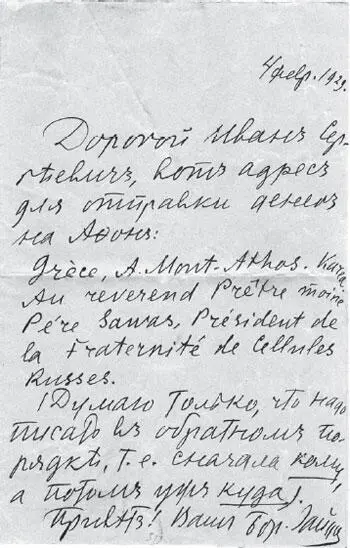 4 февр. 1929.
Дорогой Иванъ Сер-
гѣевичъ, вотъ адресъ
для отправки денегъ
на Аѳонъ:
Grèce, A. Mont-Athos.
Au reverend Prêtre moine
Père Sawas, Président de
la Fraternité de Cellules
Russes.
(Думаю только, что надо
писать въ обратномъ по-
рядкѣ, т.е. сначала кому,
а потомъ ужъ куда).
Привѣтъ! Вашъ Бор. Зайцев